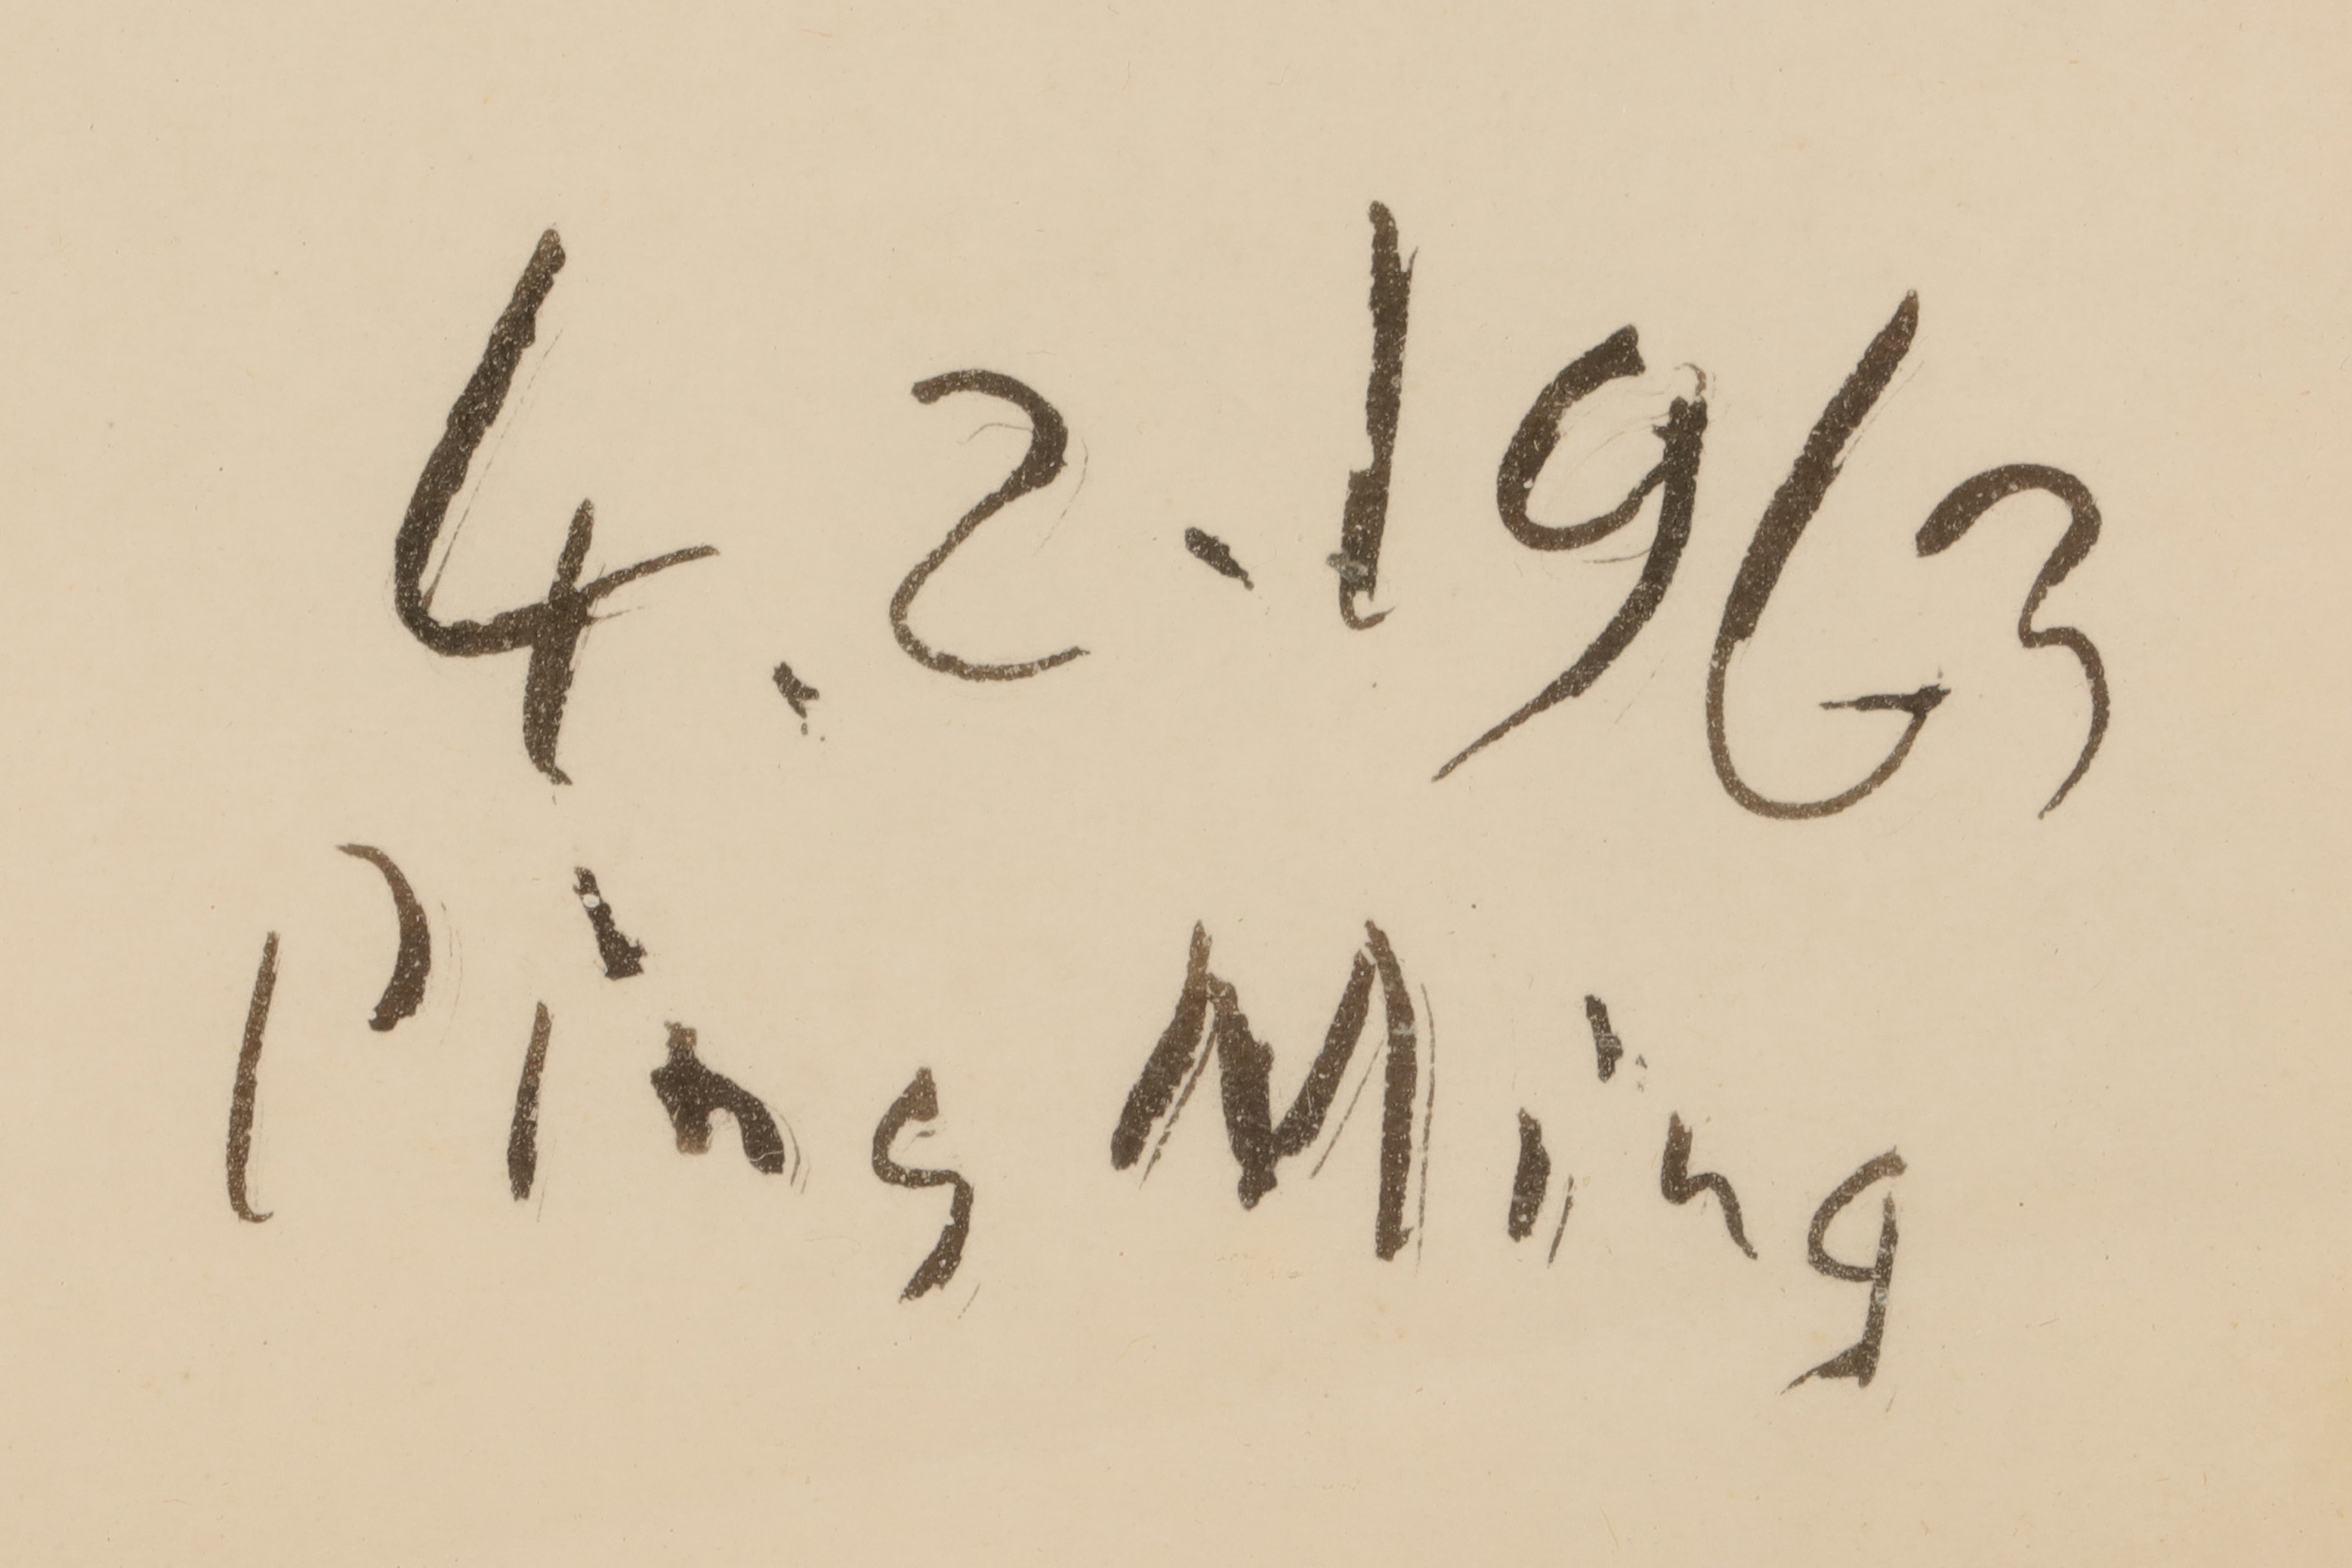 4.2.1963
Ping Ming